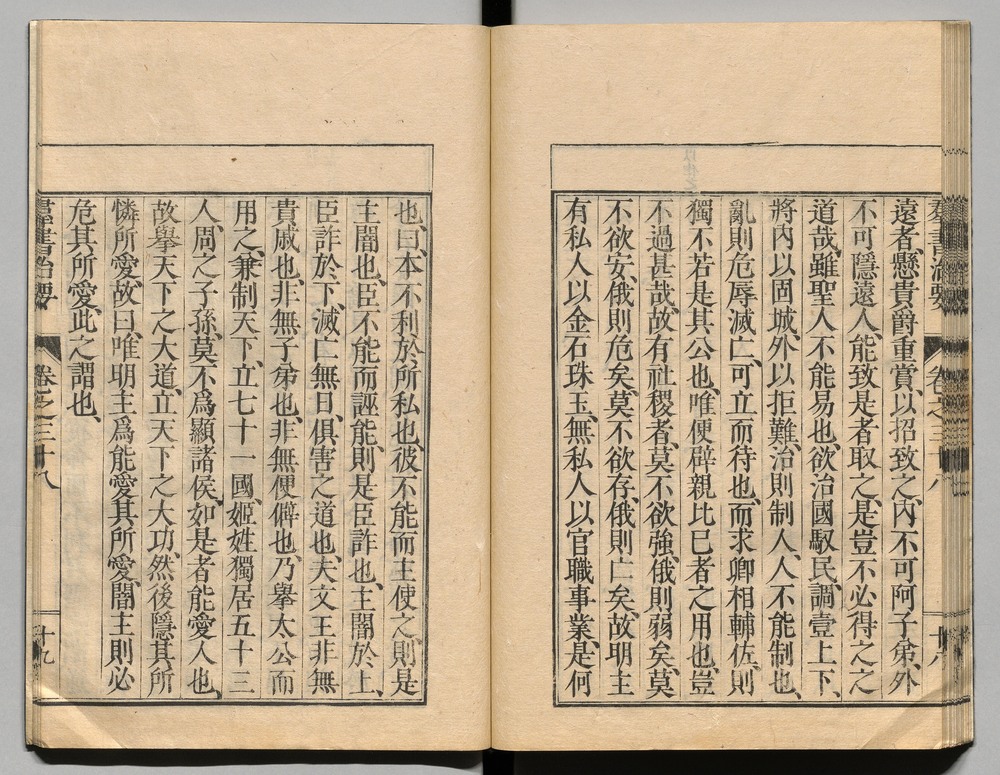 遠者、懸貴爵重賞、以招致之、內不可阿子弟、外
不可隱遠人、能致是者取之、是豈不必得之之
道哉、雖聖人不能易也、欲治國馭民、調壹上下、
將內以固城、外以拒難、治則制人、人不能制也、
亂則危辱滅亡、可立而待也、而求卿相輔佐、則
獨不若是其公也、唯便辟親比已者之用也、豈
不過甚哉、故有社稷者、莫不欲強、俄則弱矣、莫
不欲安、俄則危矣、莫不欲存、俄則亡矣、故明主
有私人以金石珠玉、無私人以官職事業、是何
也、曰、本不利於所私也、彼不能而主使之、則是
主闇也、臣不能而誣能、則是臣詐也、主闇於上、
臣詐於下、滅亡無日、俱害之道也、夫文王非無
貴戚也、非無子弟也、非無便僻也、乃舉太公而
用之、兼制天下、立七十一國、姬姓獨居五十三
人、周之子孫、莫不爲顯諸侯、如是者能愛人也、
故舉天下之大道、立天下之大功、然後隱其所
憐所愛、故曰、唯明主爲能愛其所愛、闇主則必
危其所愛、此之謂也、
羣書治要 卷之三十八 十九